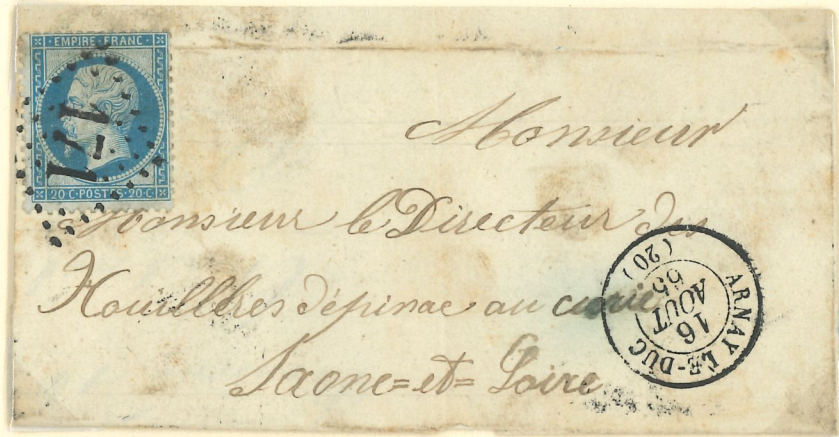 EMPIRE · FRANC ·
20·C·POSTES·20·C·
171
Monsieur
Monsieur le Directeur des
Houillères d'épinac au
Saone=et=Loire
ARNAY LE-DUC
16
AOUT
65
(20)